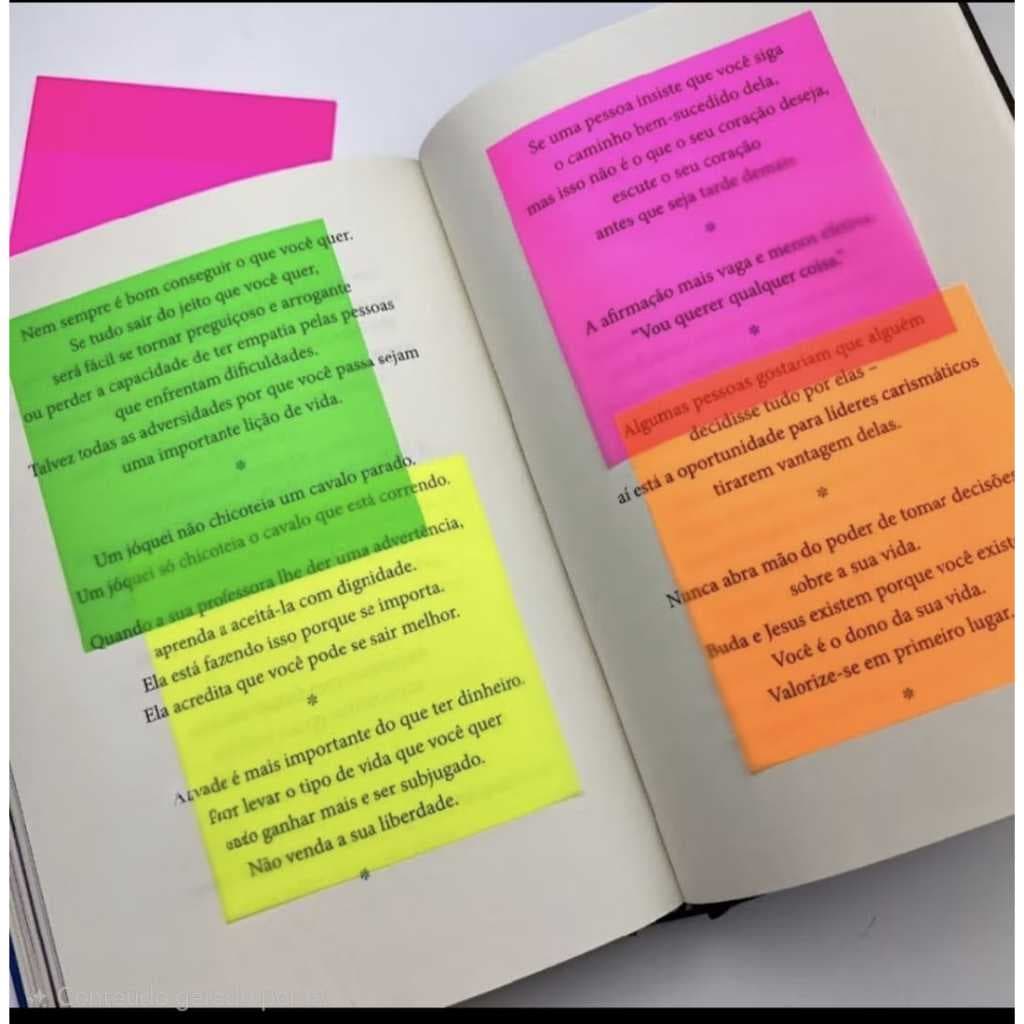 Nem sempre é bom conseguir o que você quer.
Se tudo sair do jeito que você quer,
será fácil se tornar preguiçoso e arrogante
ou perder a capacidade de ter empatia pelas pessoas
que enfrentam dificuldades.
Talvez todas as adversidades por que você passa sejam
uma importante lição de vida.
*
Um jóquei não chicoteia um cavalo parado.
Um jóquei só chicoteia o cavalo que está correndo.
Quando a sua professora lhe der uma advertência,
aprenda a aceitá-la com dignidade.
Ela está fazendo isso porque se importa.
Ela acredita que você pode se sair melhor.
*
é mais importante do que ter dinheiro.
levar o tipo de vida que você quer
ganhar mais e ser subjugado.
Não venda a sua liberdade.
*
Se uma pessoa insiste que você siga
o caminho bem-sucedido dela,
mas isso não é o que o seu coração deseja,
escute o seu coração
antes que seja tarde demais
*
A afirmação mais vaga e menos efetiva:
"Vou querer qualquer coisa."
*
Algumas pessoas gostariam que alguém
decidisse tudo por elas –
aí está a oportunidade para líderes carismáticos
tirarem vantagem delas.
*
Nunca abra mão do poder de tomar decisões
sobre a sua vida.
Buda e Jesus existem porque você existe
Você é o dono da sua vida.
Valorize-se em primeiro lugar.
*
Conteúdo gerado por